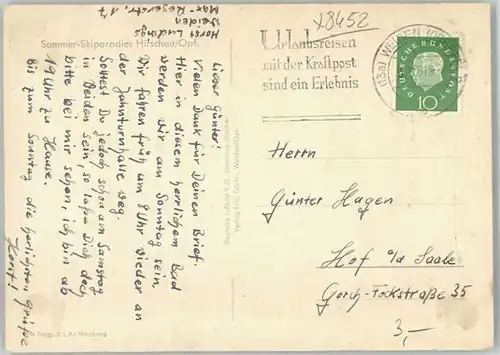 Horst Ludwigs
Weiden
Max-Regerstr. 17
Sommer-Skiparadies Hirschau/Opf.
Lieber Günter!
Vielen Dank für Deinen Brief.
Hier in diesem herrlichem Bad
werden wir am Sonntag sein.
Wir fahren früh um 8 Uhr wieder an
der Jahnturnhalle weg.
Solltest Du jedoch schon am Samstag
in Weiden sein, so laße Dich doch
bitte bei mir sehen, ich bin ab
19 Uhr zu Hause.
Bis zum Sonntag die herzlichsten Grüße
Horst
x8452
Urlaubsreisen
mit der Kraftpost
sind ein Erlebnis
(13a) WEIDEN
DEUTSCHE BUNDESPOST
10
Herrn
Günter Hagen
Hof a/d Saale
Gorch-Fockstraße 35
3,-